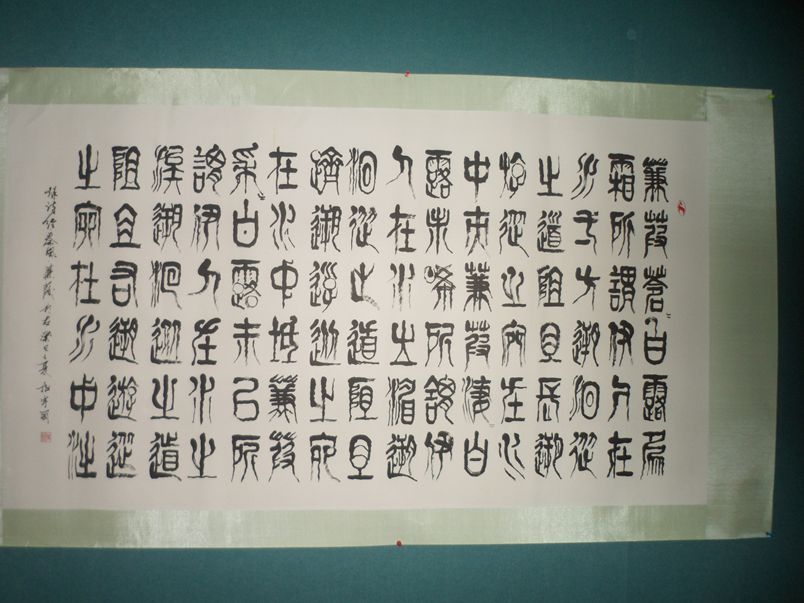 蒹葭蒼〻白露為
霜所謂伊人在
水一方遡洄從
之道阻且長遡
游從之宛在水
中央蒹葭淒〻白
露未晞所謂伊
人在水之湄遡
洄從之道阻且
躋遡游從之宛
在水中坻蒹葭
采〻白露未已所
謂伊人在水之
涘遡洄從之道
阻且右遡游從
之宛在水中沚
詩經秦風蒹葭